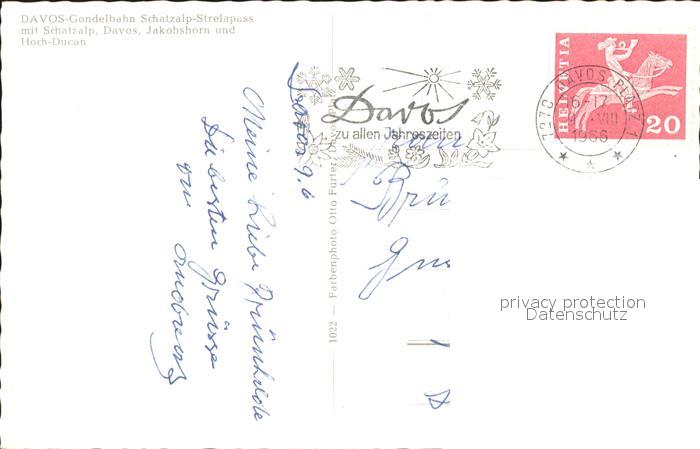 DAVOS-Gondelbahn Schatzalp-Strelapass
mit Schatzalp, Davos, Jakobshorn und
Hoch-Ducan
Davos 9.6
Meine liebe Brünhilde
Die besten Grüsse
von
Davos
zu allen Jahreszeiten
7270 DAVOS PLATZ 1
VIII
1966
HELVETIA
20
1022 — Farbenphoto Otto Furter
privacy protection
Datenschutz